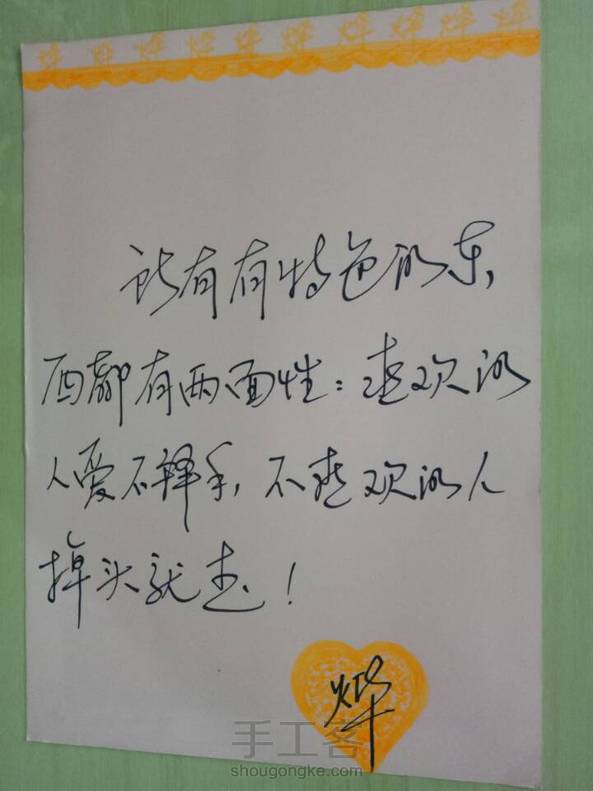 烨 烨 烨 烨 烨 烨 烨 烨 烨 烨 烨
所有有特色的东
西都有两面性：喜欢的
人爱不释手，不喜欢的人
掉头就走！
烨
手工客
shougongke.com